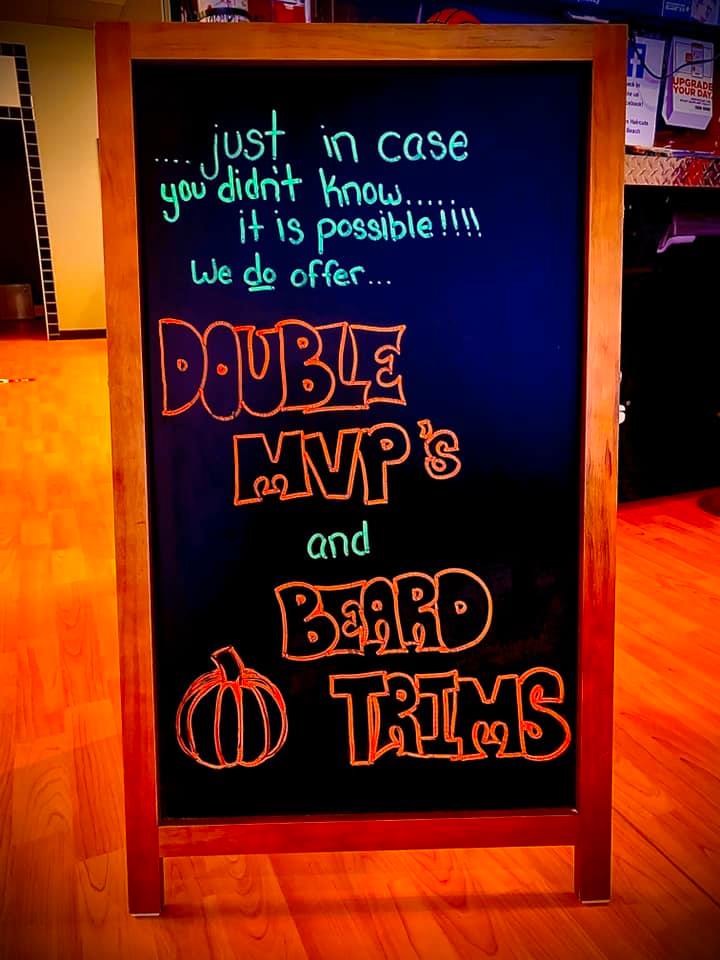 .... just in case
you didn't know.....
it is possible!!!!
We do offer...
DOUBLE
MVP's
and
BEARD
TRIMS
UPGRADE
YOUR DAY
Haircuts
Beach